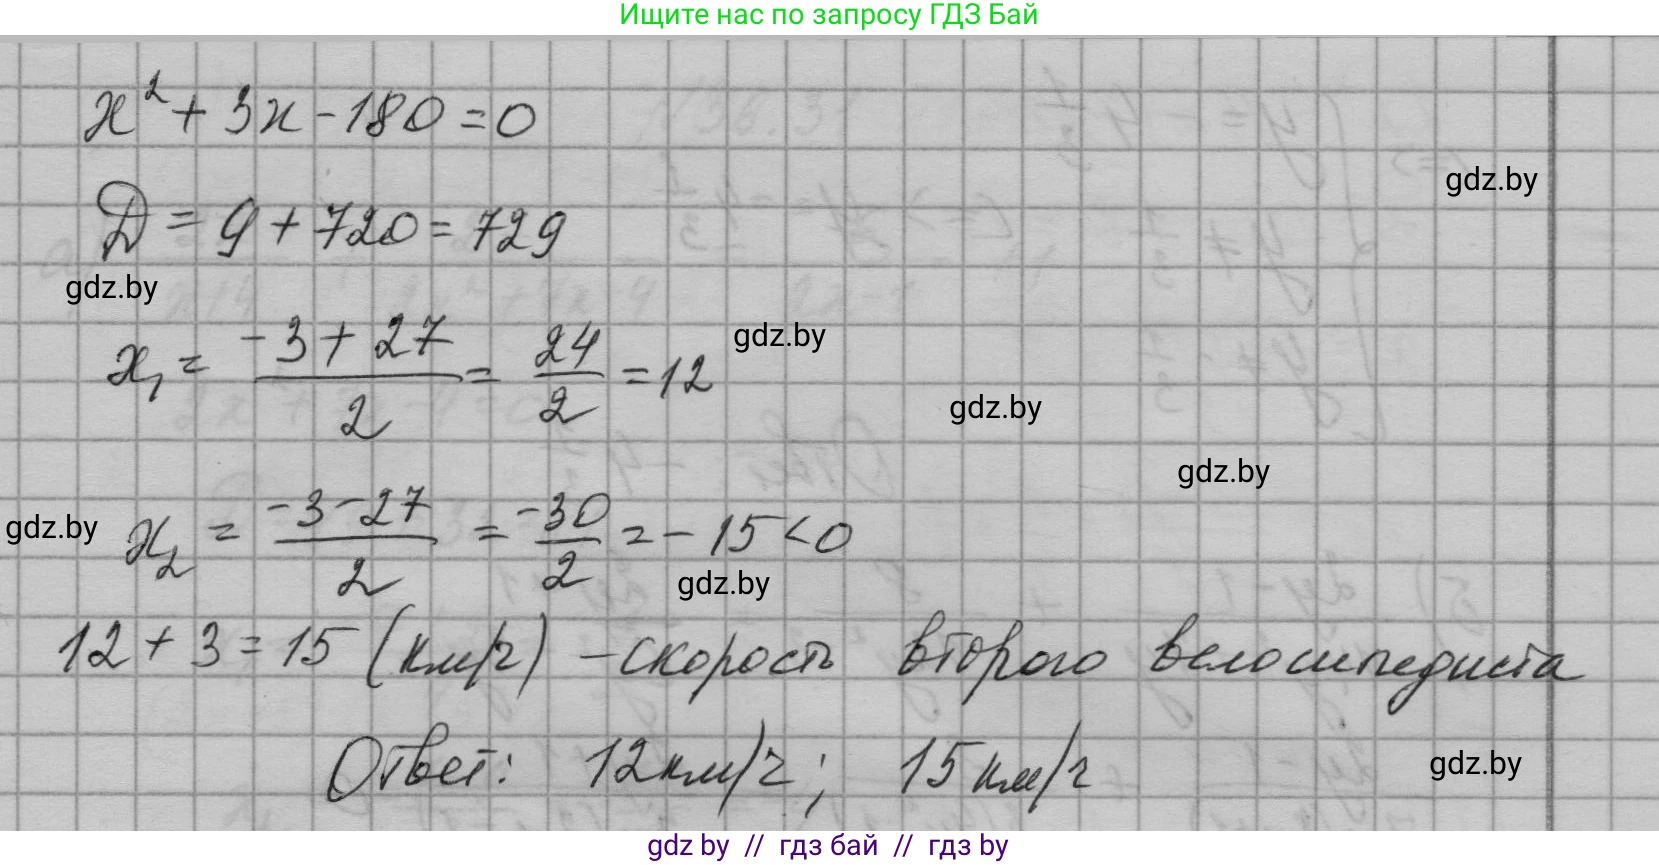 Ищите нас по запросу ГДЗ Бай
x² + 3x - 180 = 0
gdz.by
D = 9 + 720 = 729
gdz.by
x₁ = (-3 + 27)/2 = 24/2 = 12
gdz.by
gdz.by
gdz.by
x₂ = (-3 - 27)/2 = -30/2 = -15 < 0
gdz.by
gdz.by
12 + 3 = 15 (км/ч) - скорость второго велосипедиста
Ответ: 12 км/ч; 15 км/ч
gdz.by
gdz by // гдз бай // гдз by